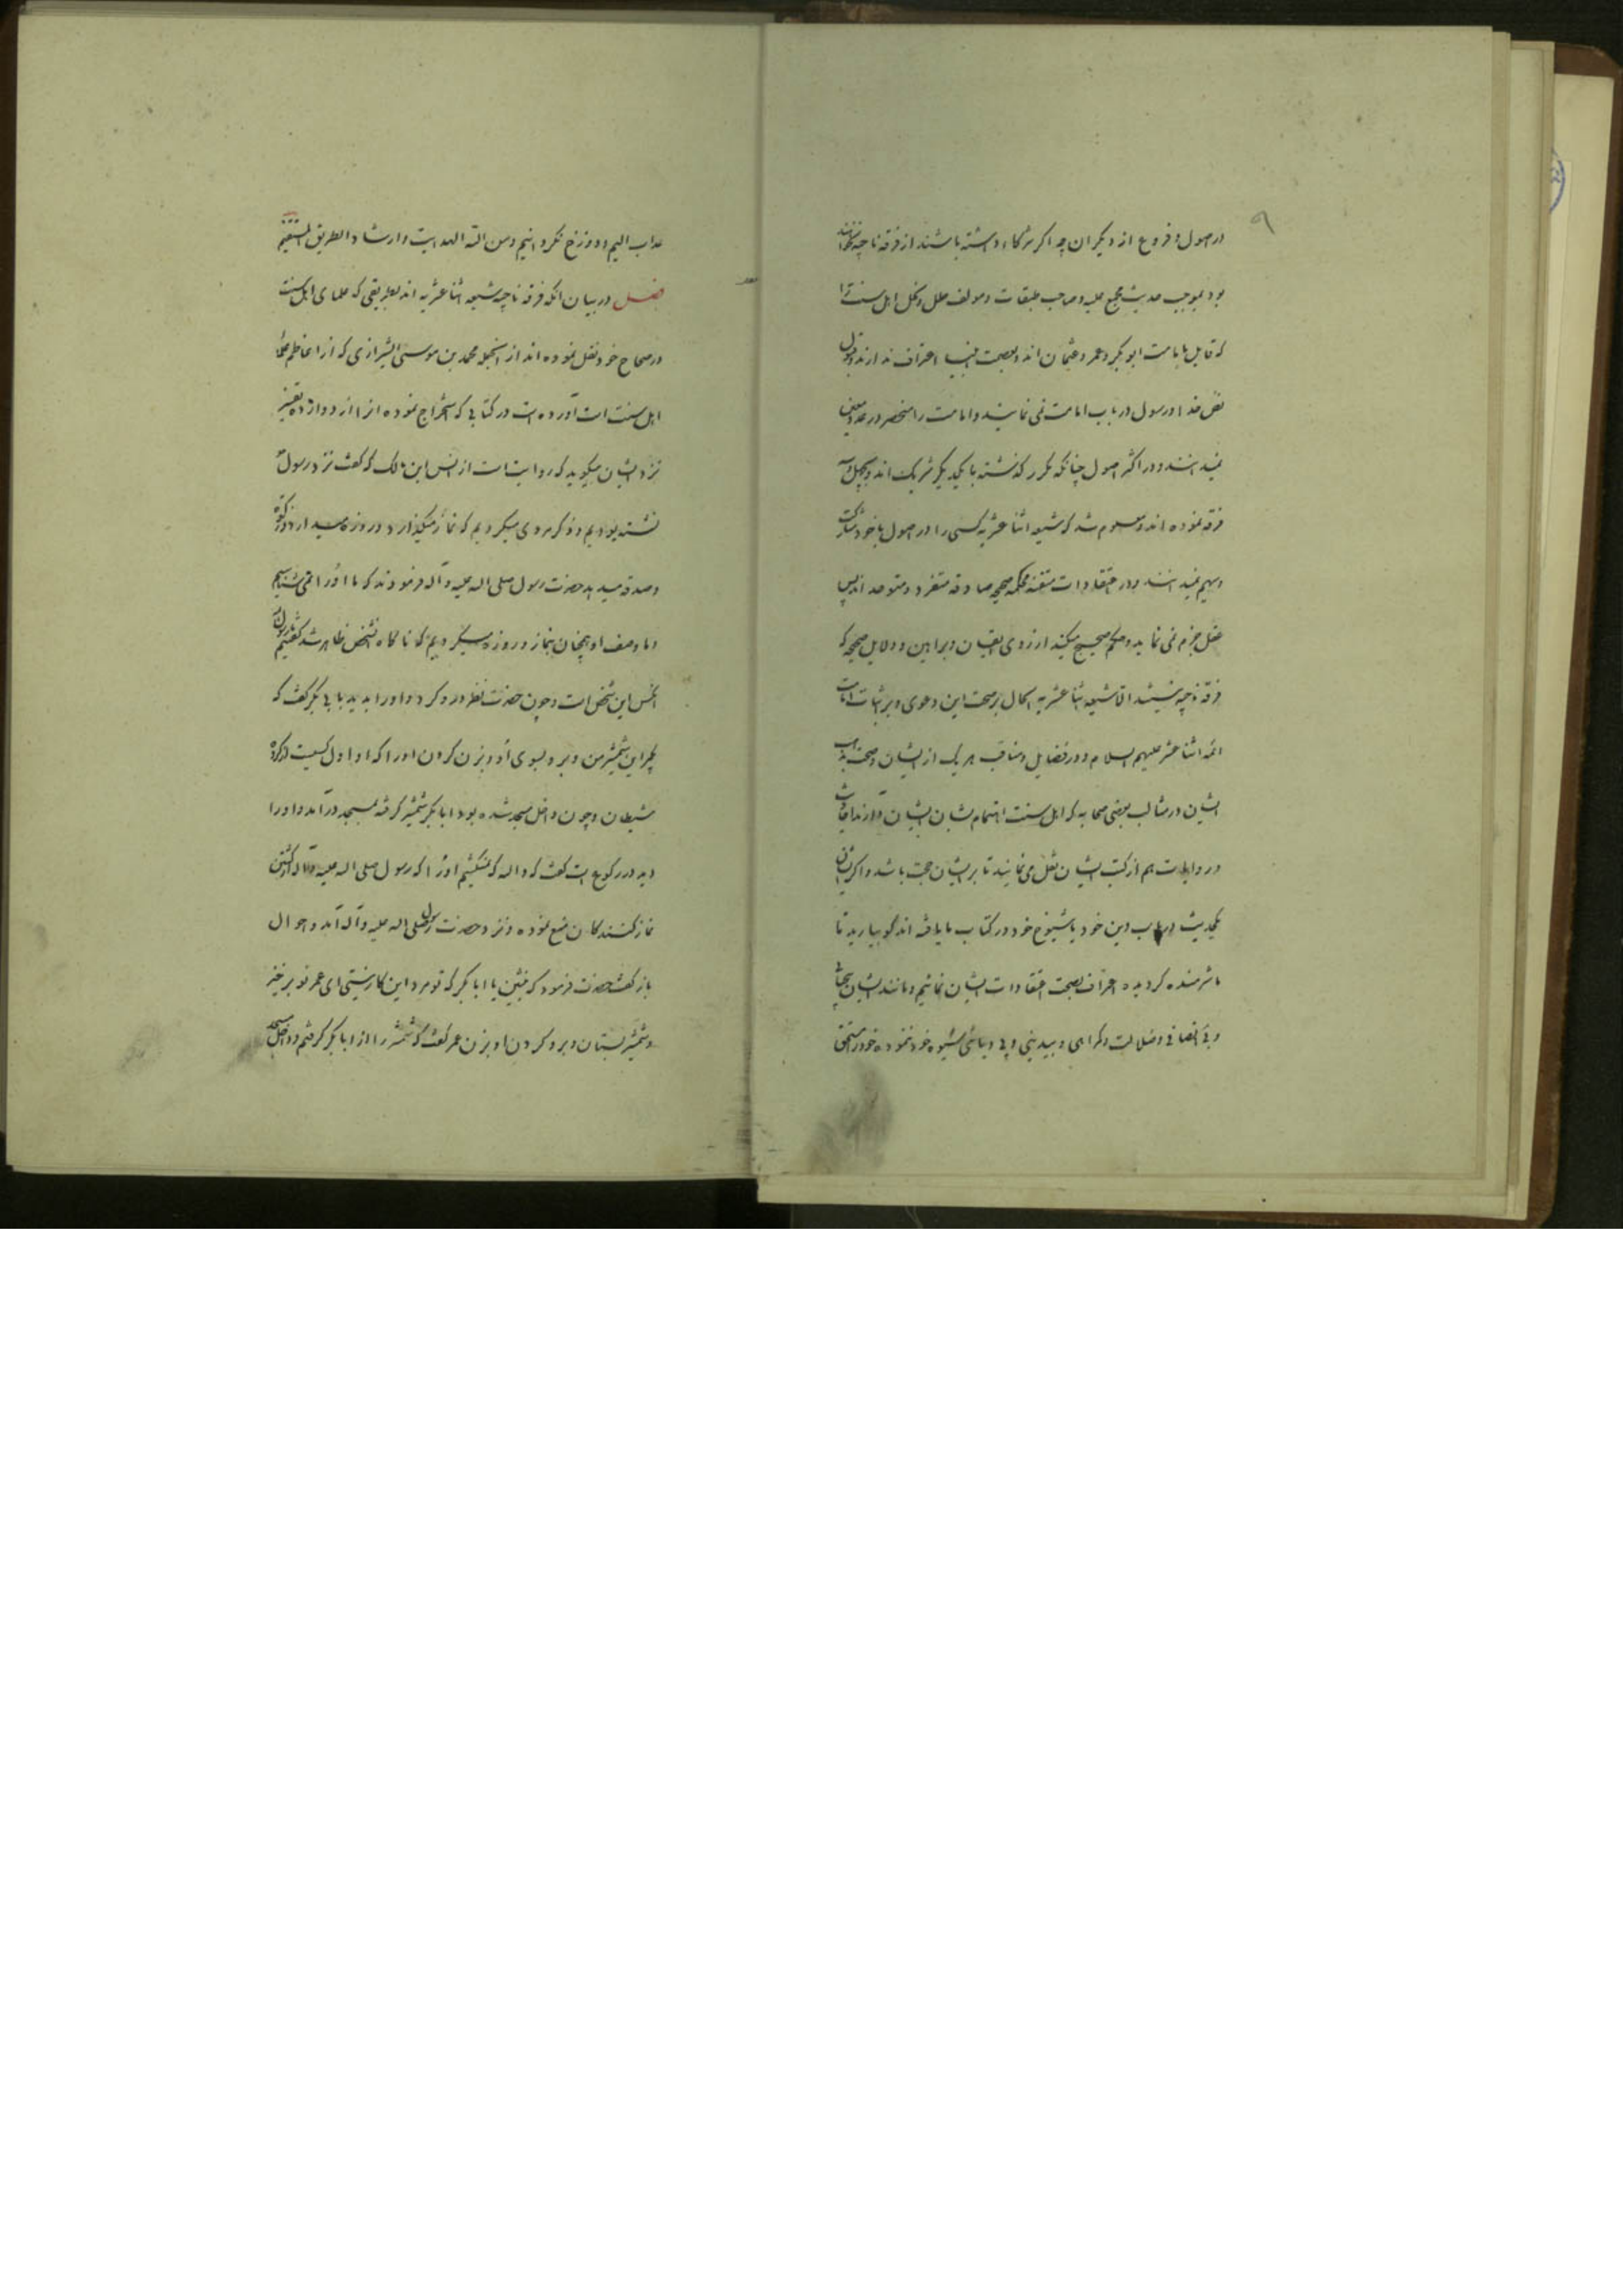 ۹
در اصول و فروع از دیگران چه اگر شرکاء داشته باشند از فرقه ناجیه نخواهند
بود بموجب حدیث مجمع علیه و صاحب طبقات و مولف ملل و نحل اهل سنت را
که قایل بامامت ابوبکر و عمر و عثمان اند و بعصمت انبیا اعتراف ندارند و قبول
نص خدا و رسول در باب امامت نمی نمایند و امامت را منحصر در عدد معین
نمیدانند و در اکثر اصول چنانکه مکرر گذشته با یکدیگر شریک اند
فرقه نموده اند و معلوم شد که شیعه اثنا عشریه کسی را در اصول با خود مشارک
و سهیم نمیدانند و در اعتقادات متقنه محکمه صحیحه صادقه متفرد و متوحد اند پس
عقل جزم می نماید و حکم صحیح میکند از روی ایقان و براهین و دلایل صحیحه که
فرقه ناجیه نیستند الا شیعه اثنا عشریه الحال بر صحت این دعوی و بر اثبات امامت
ائمه اثنا عشر علیهم السلام و در فضایل و مناقب هر یک از ایشان و صحت مذهب
ایشان در مثالب بعضی صحابه که اهل سنت اهتمام بشان ایشان دارند احادیث
و روایات هم از کتب ایشان نقل می نمایند تا بر ایشان حجت باشد و اگر ایشان
یکحدیث در باب دین خود یا شیوخ خود در کتاب ما یافته اند گو بیارید تا
ما شرمنده گردیده اعتراف بصحت اعتقادات ایشان نمائیم و مانند ایشان
و بی انصافی و ضلالت و گمراهی و بیدینی و بی دیانتی شیوه خود ننموده خود را مستحق
عذاب الیم و دوزخ نگردانیم و من الله الهدایت و ارشاد الطریق المستقیم
فصل در بیان آنکه فرقه ناجیه شیعه اثنا عشریه اند بطریقی که علمای اهل سنت
در صحاح خود نقل نموده اند از آنجمله محمد بن موسی الشیرازی که از اعاظم علماء
اهل سنت است آورده است در کتابی که استخراج نموده انرا از دوازده تفسیر
نزد ایشان میگوید که روایت است از انس ابن مالک که گفت نزد رسول
نشسته بودیم و ذکر مردی میکردیم که نماز میگذارد و روزه میدارد و زکوة
و صدقه میدهد حضرت رسول صلی الله علیه و آله فرمودند که ما او را نمی شناسیم
و ما وصف او همچنان بنماز و روزه میکردیم که ناگاه آنشخص ظاهر شد گفتیم یا رسول
الله این شخص است و چون حضرت نظر در و کرد و او را بدید با ابی بکر گفت که
بگیر این شمشیر من و برو بسوی او و بزن گردن او را که او اول کسیست از گروه
شیطان و چون داخل مسجد شده بود ابا بکر شمشیر گرفته بمسجد درآمد و او را
دید در رکوع است گفت که والله که نکشیم او را که رسول صلی الله علیه و آله از کشتن
نماز کنندگان منع نموده و نزد حضرت رسول صلی الله علیه و آله آمد و احوال
باز گفت حضرت فرمود که بنشین یا ابا بکر که تو مرد این کار نیستی ای عمر تو برخیز
و شمشیر بستان و برو گردن او بزن عمر گفت که شمشیر را از ابا بکر گرفتم و داخل مسجد